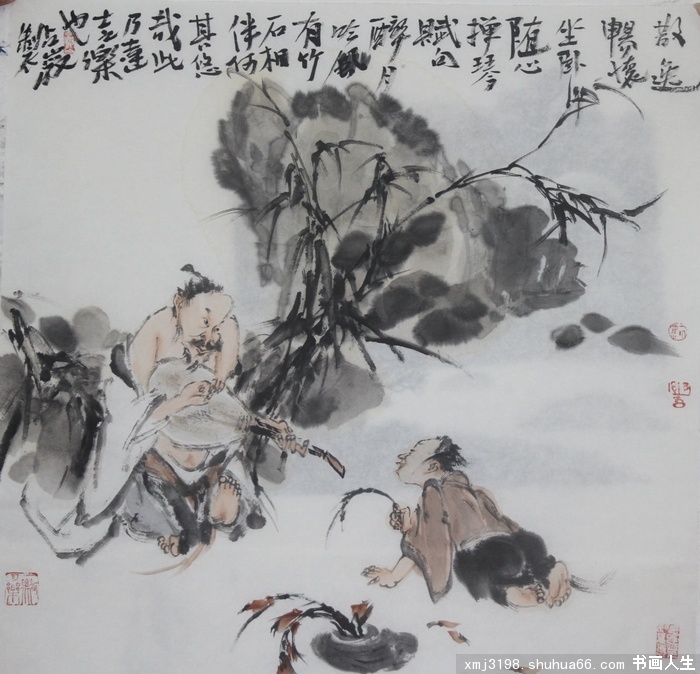 散逸
暢懷
坐卧
随心
琴
賦句
醉月
吟風
有竹
石相
伴何
其悠
哉此
乃達
樂
也
xmj3198.shuhua66.com 书画人生